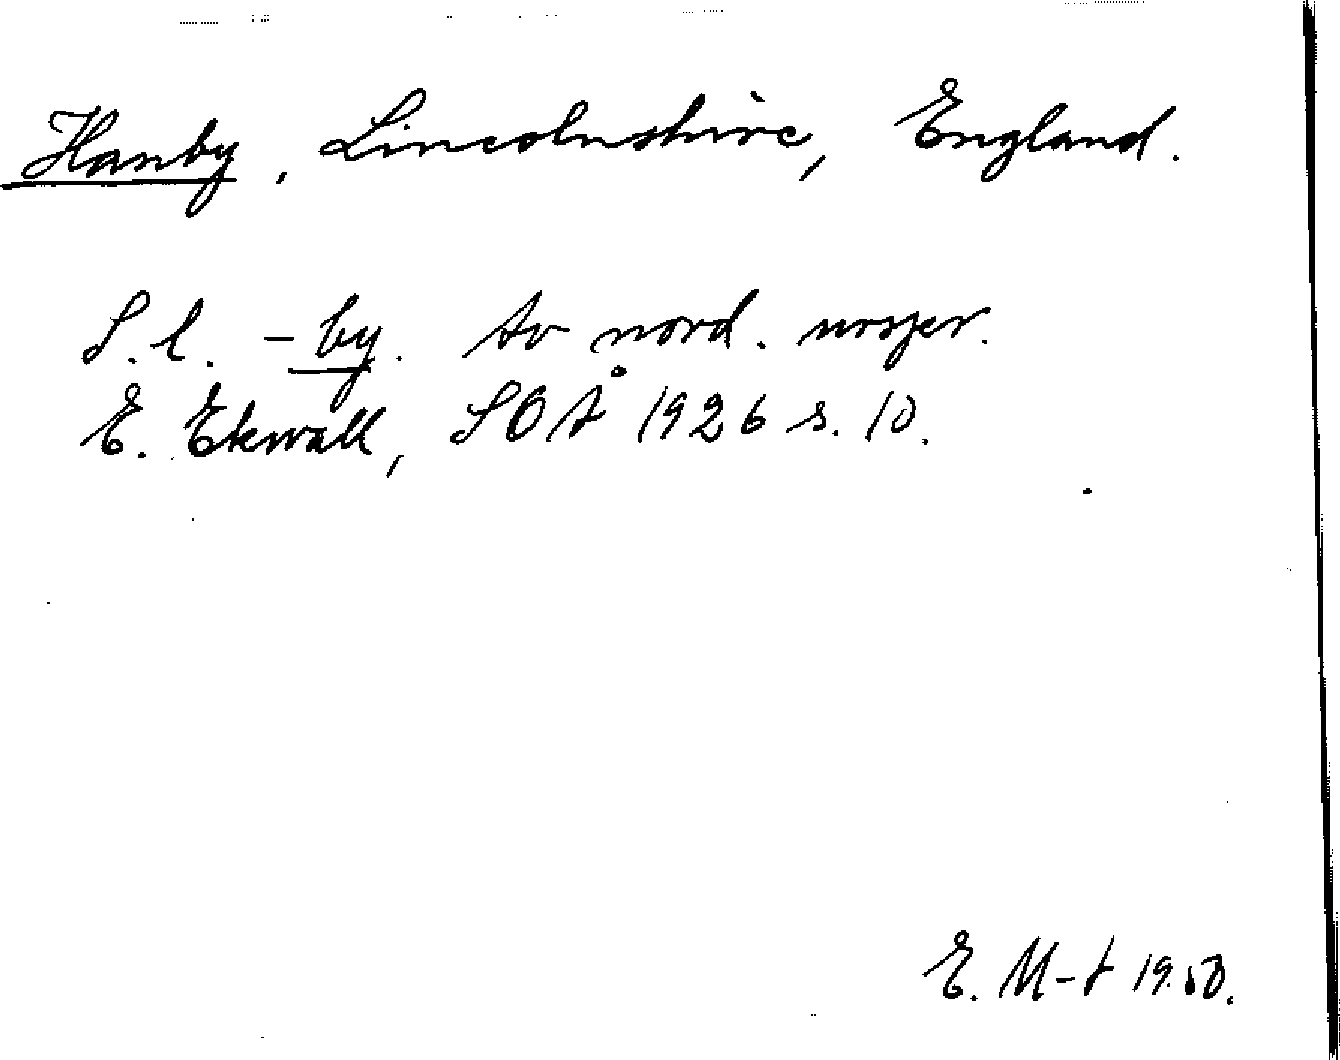 Hanby, Lincolnshire, England.
S.l. -by. Av nord. urspr.
E. Ekwall, SOÅ 1926 s. 10.
E. M-t